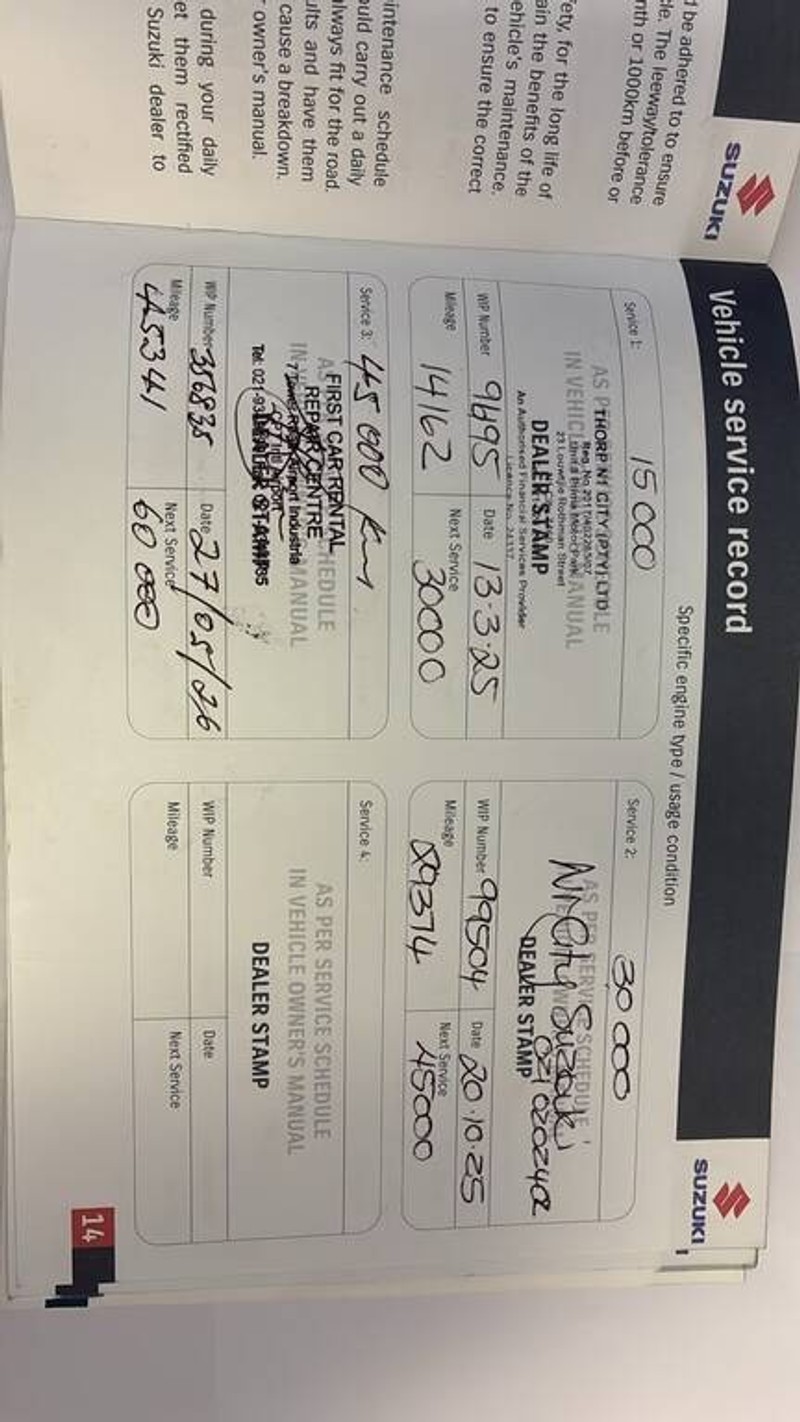 d be adhered to to ensure
cle. The leeway/tolerance
nth or 1000km before or
fety, for the long life of
ain the benefits of the
ehicle's maintenance.
to ensure the correct
intenance schedule
ould carry out a daily
always fit for the road.
ults and have them
cause a breakdown.
owner's manual.
during your daily
et them rectified
Suzuki dealer to
SUZUKI
Vehicle service record
SUZUKI
Specific engine type / usage condition
Service 1: 15 000
THORP N1 CITY (PTY) LTD
Reg. No 2017/402265/07
23 Louwtjie Rothman Street
DEALER STAMP
An Authorised Financial Services Provider
Licence No. 24337
WIP Number 9695 Date 13.3.25
Mileage 14162 Next Service 30000
Service 2: 30 000
AS PER SERVICE SCHEDULE
N1 City Suzuki
DEALER STAMP
WIP Number 99504 Date 20.10.25
Mileage 29374 Next Service 45000
Service 3: 45 000 km
FIRST CAR RENTAL
REPAIR CENTRE
DEALER STAMP
WIP Number 356835 Date 27/05/26
Mileage 45341 Next Service 60 000
Service 4:
AS PER SERVICE SCHEDULE
IN VEHICLE OWNER'S MANUAL
DEALER STAMP
WIP Number Date
Mileage Next Service
14